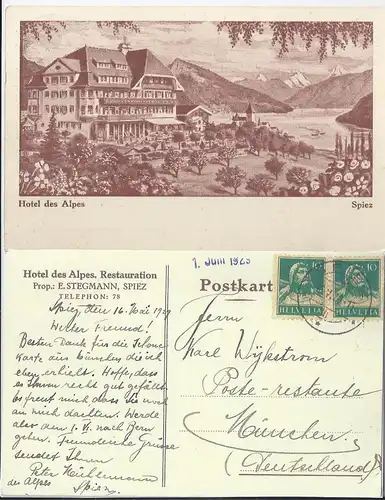 Hotel des Alpes
Spiez
1. Juni 1929
Hotel des Alpes. Restauration
Prop.: E. STEGMANN, SPIEZ
TELEPHON: 78
Postkart
10
HELVETIA
10
HELVETIA
Spiez, den 16. Mai 1929
Werter Freund!
Besten Dank für die schöne
Karte aus München die ich
eben erhielt. Hoffe, dass
es Ihnen recht gut gefällt.
Es freut mich dass Sie noch
an mich dachten. Werde
also den 1. nach Bern
gehen. Freundliche Grüsse
sendet Ihnen
Peter
des Alpes
Spiez
Herrn
Karl Wijkstrom
Poste-restante
München.
(Deutschland)